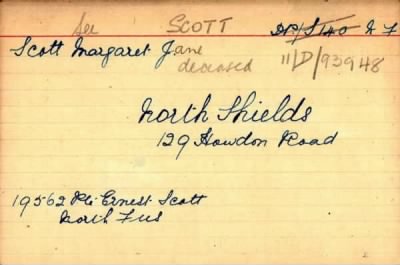 See SCOTT DP/S 140 N F
Scott Margaret Jane
deceased 11/D/93948
North Shields
129 Howdon Road
19562 Pte Ernest Scott
North Fus